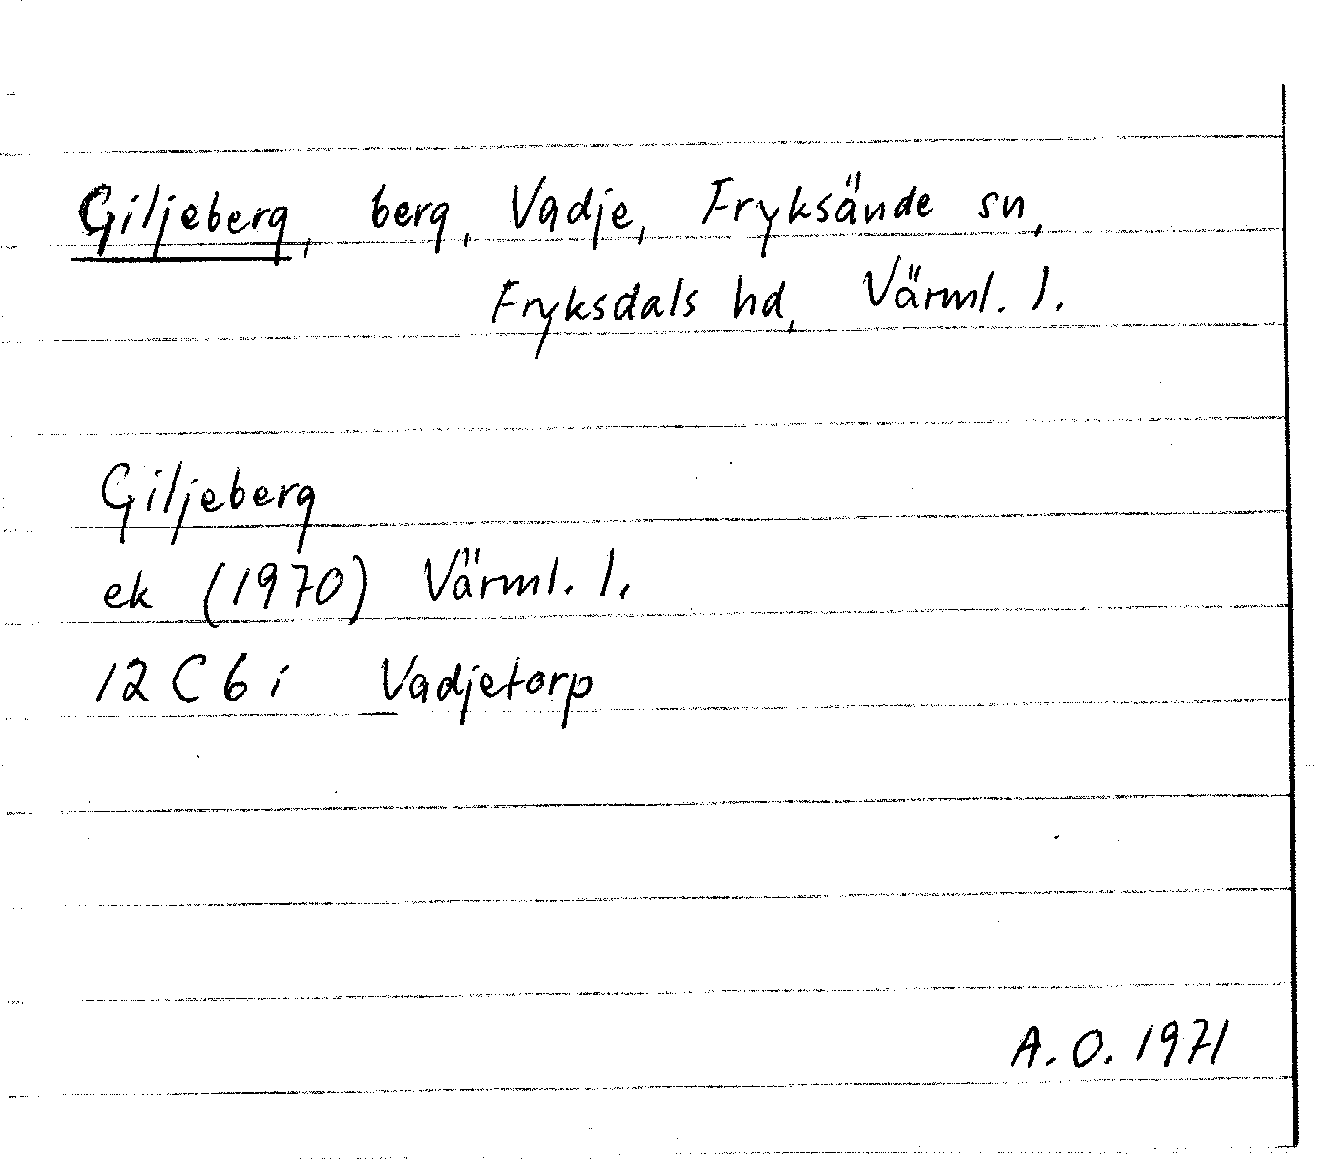 Giljeberg, berg, Vadje, Fryksände sn,
Fryksdals hd, Värml. l.
Giljeberg
ek (1970) Värml. l.
12 C 6 i Vadjetorp
A. O. 1971